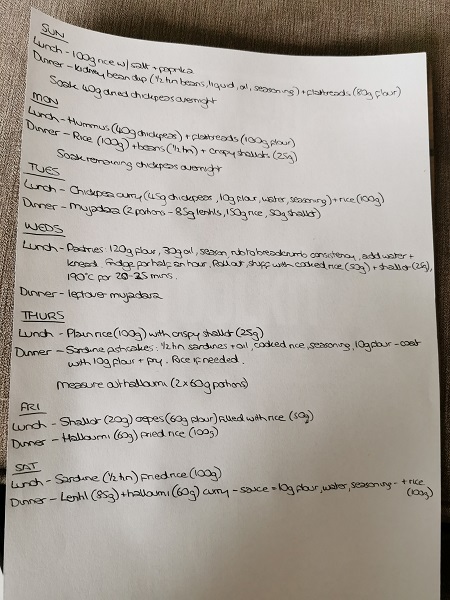 SUN
Lunch - 100g rice w/ salt + paprika
Dinner - kidney bean dip (1/2 tin beans, liquid, oil, seasoning) + flatbreads (80g flour)
Soak 40g dried chickpeas overnight
MON
Lunch - Hummus (40g chickpeas) + flatbreads (100g flour)
Dinner - Rice (100g) + beans (1/2 tin) + crispy shallots (25g)
Soak remaining chickpeas overnight
TUES
Lunch - Chickpea curry (45g chickpeas, 10g flour, water, seasoning) + rice (100g)
Dinner - Mujadara (2 portions - 85g lentils, 150g rice, 50g shallot)
WEDS
Lunch - Pastries: 120g flour, 30g oil, season, rub to breadcrumb consistency, add water +
knead. Fridge for half an hour. Roll out, stuff with cooked rice (50g) + shallot (25g),
190°C for 20-25 mins.
Dinner - leftover mujadara
THURS
Lunch - Plain rice (100g) with crispy shallot (25g)
Dinner - Sardine fishcakes: 1/2 tin sardines + oil, cooked rice, seasoning, 10g flour - coat
with 10g flour + fry. Rice if needed.
Measure out halloumi (2 x 60g portions)
FRI
Lunch - Shallot (20g) crepes (60g flour) filled with rice (50g)
Dinner - Halloumi (60g) fried rice (100g)
SAT
Lunch - Sardine (1/2 tin) fried rice (100g)
Dinner - Lentil (85g) + halloumi (60g) curry - sauce = 10g flour, water, seasoning - + rice
(100g)